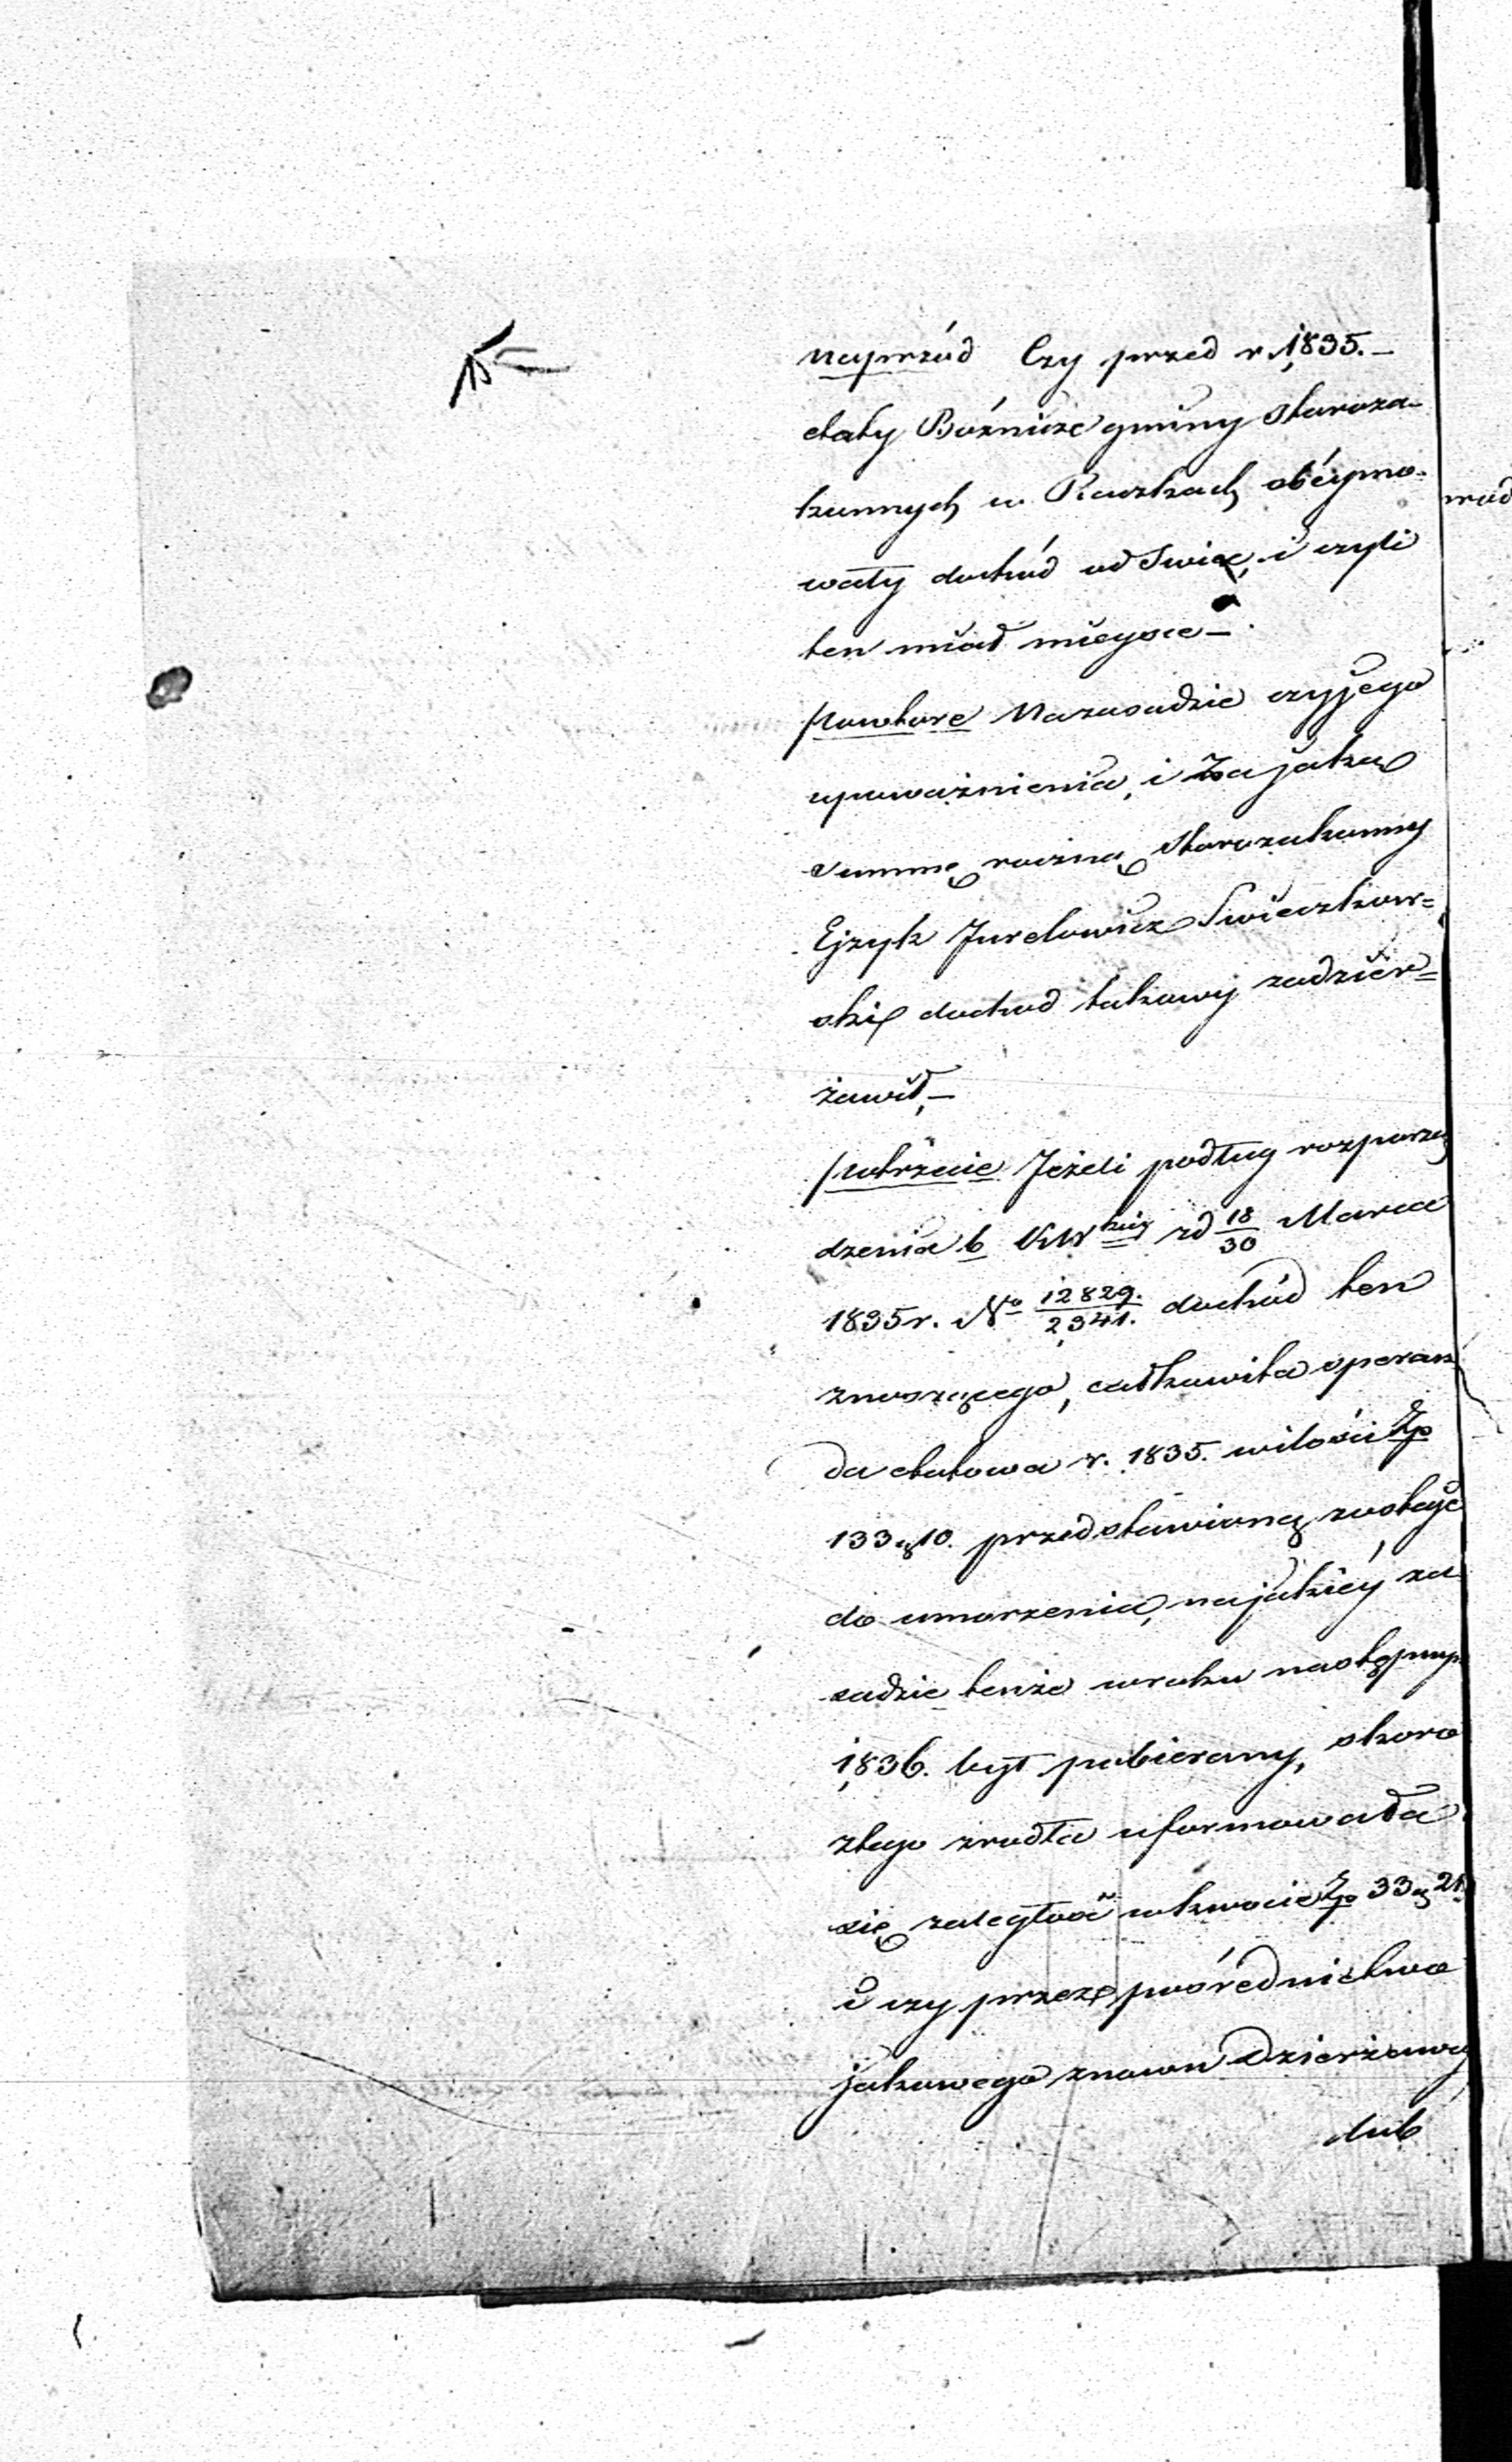 naprzód Czy przed r. 1835. –
etaty Bóźnicze gminy Staroza-
konnych w Raczkach obéymo-
wały dochód od Swiec, i czyli
ten miał mieysce –
powtore Na zasadzie czyjego
upoważnienia, i Za jaką
summę roczną Starozakonny
Ejzyk Jurelowicz Swieczkow=
ski dochod takowy zadzier=
żawił, –
potrzecie Jeżeli podług rozporzą
dzenia b KW kiéy zd 18/30 Marca
1835 r. No 12829./2341. dochód ten
znoszącego, całkowita operan
da etatowa r. 1835. wilości Zp
133 g 10. przedstawioną zostaje
do umorzenia, na jakiéy za
sadzie tenże w roku następnym
1836. był pobierany, skoro
z tego zrodła uformowała
się zaległość w kwocie Zp 33 g 21.
i czy przez pośrednictwo
jakowego znown Dzierżawcy
lub